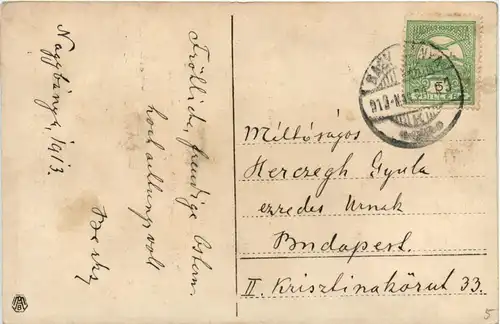 Nagybánya, 1913.
Fröhliche, freudige Ostern
hochachtungsvoll
Méltóságos
Herczegh Gyula
ezredes Urnak
Budapest.
II. Krisztina körut 33.
5